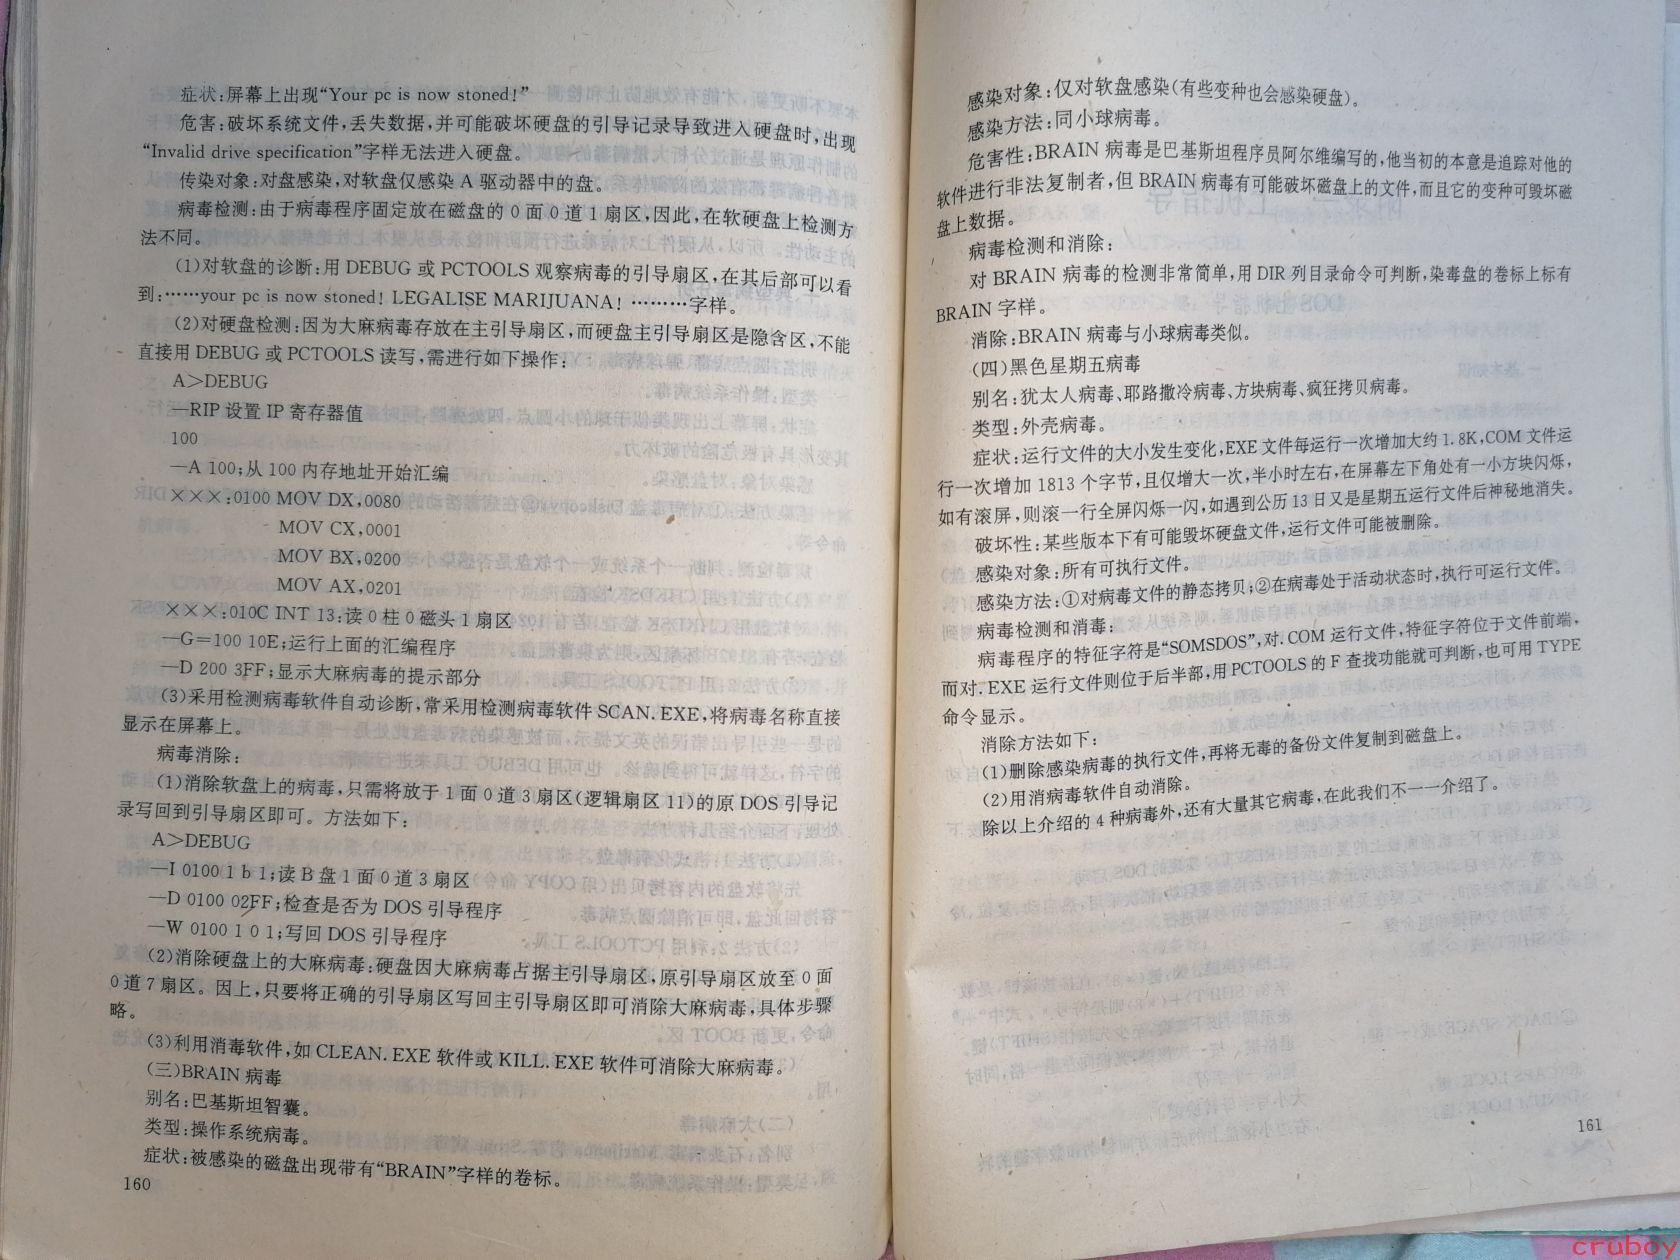 症状:屏幕上出现“Your pc is now stoned!”
危害:破坏系统文件,丢失数据,并可能破坏硬盘的引导记录导致进入硬盘时,出现
“Invalid drive specification”字样无法进入硬盘。
传染对象:对盘感染,对软盘仅感染 A 驱动器中的盘。
病毒检测:由于病毒程序固定放在磁盘的 0 面 0 道 1 扇区,因此,在软硬盘上检测方
法不同。
(1)对软盘的诊断:用 DEBUG 或 PCTOOLS 观察病毒的引导扇区,在其后部可以看
到:……your pc is now stoned! LEGALISE MARIJUANA! ………字样。
(2)对硬盘检测:因为大麻病毒存放在主引导扇区,而硬盘主引导扇区是隐含区,不能
直接用 DEBUG 或 PCTOOLS 读写,需进行如下操作:
A>DEBUG
—RIP 设置 IP 寄存器值
100
—A 100;从 100 内存地址开始汇编
×××:0100 MOV DX,0080
MOV CX,0001
MOV BX,0200
MOV AX,0201
×××:010C INT 13:读 0 柱 0 磁头 1 扇区
—G=100 10E;运行上面的汇编程序
—D 200 3FF;显示大麻病毒的提示部分
(3)采用检测病毒软件自动诊断,常采用检测病毒软件 SCAN. EXE,将病毒名称直接
显示在屏幕上。
病毒消除:
(1)消除软盘上的病毒,只需将放于 1 面 0 道 3 扇区(逻辑扇区 11)的原 DOS 引导记
录写回到引导扇区即可。方法如下:
A>DEBUG
—I 0100 1 b 1;读 B 盘 1 面 0 道 3 扇区
—D 0100 02FF;检查是否为 DOS 引导程序
—W 0100 1 0 1;写回 DOS 引导程序
(2)消除硬盘上的大麻病毒:硬盘因大麻病毒占据主引导扇区,原引导扇区放至 0 面
0 道 7 扇区。因上,只要将正确的引导扇区写回主引导扇区即可消除大麻病毒,具体步骤
略。
(3)利用消毒软件,如 CLEAN. EXE 软件或 KILL. EXE 软件可消除大麻病毒。
(三)BRAIN 病毒
别名:巴基斯坦智囊。
类型:操作系统病毒。
症状:被感染的磁盘出现带有“BRAIN”字样的卷标。
160
感染对象:仅对软盘感染(有些变种也会感染硬盘)。
感染方法:同小球病毒。
危害性:BRAIN 病毒是巴基斯坦程序员阿尔维编写的,他当初的本意是追踪对他的
软件进行非法复制者,但 BRAIN 病毒有可能破坏磁盘上的文件,而且它的变种可毁坏磁
盘上数据。
病毒检测和消除:
对 BRAIN 病毒的检测非常简单,用 DIR 列目录命令可判断,染毒盘的卷标上标有
BRAIN 字样。
消除:BRAIN 病毒与小球病毒类似。
(四)黑色星期五病毒
别名:犹太人病毒、耶路撒冷病毒、方块病毒、疯狂拷贝病毒。
类型:外壳病毒。
症状:运行文件的大小发生变化,EXE 文件每运行一次增加大约 1. 8K,COM 文件运
行一次增加 1813 个字节,且仅增大一次,半小时左右,在屏幕左下角处有一小方块闪烁,
如有滚屏,则滚一行全屏闪烁一闪,如遇到公历 13 日又是星期五运行文件后神秘地消失。
破坏性:某些版本下有可能毁坏硬盘文件,运行文件可能被删除。
感染对象:所有可执行文件。
感染方法:①对病毒文件的静态拷贝;②在病毒处于活动状态时,执行可运行文件。
病毒检测和消毒:
病毒程序的特征字符是“SOMSDOS”,对. COM 运行文件,特征字符位于文件前端,
而对. EXE 运行文件则位于后半部,用 PCTOOLS 的 F 查找功能就可判断,也可用 TYPE
命令显示。
消除方法如下:
(1)删除感染病毒的执行文件,再将无毒的备份文件复制到磁盘上。
(2)用消病毒软件自动消除。
除以上介绍的 4 种病毒外,还有大量其它病毒,在此我们不一一介绍了。
161
cruboy